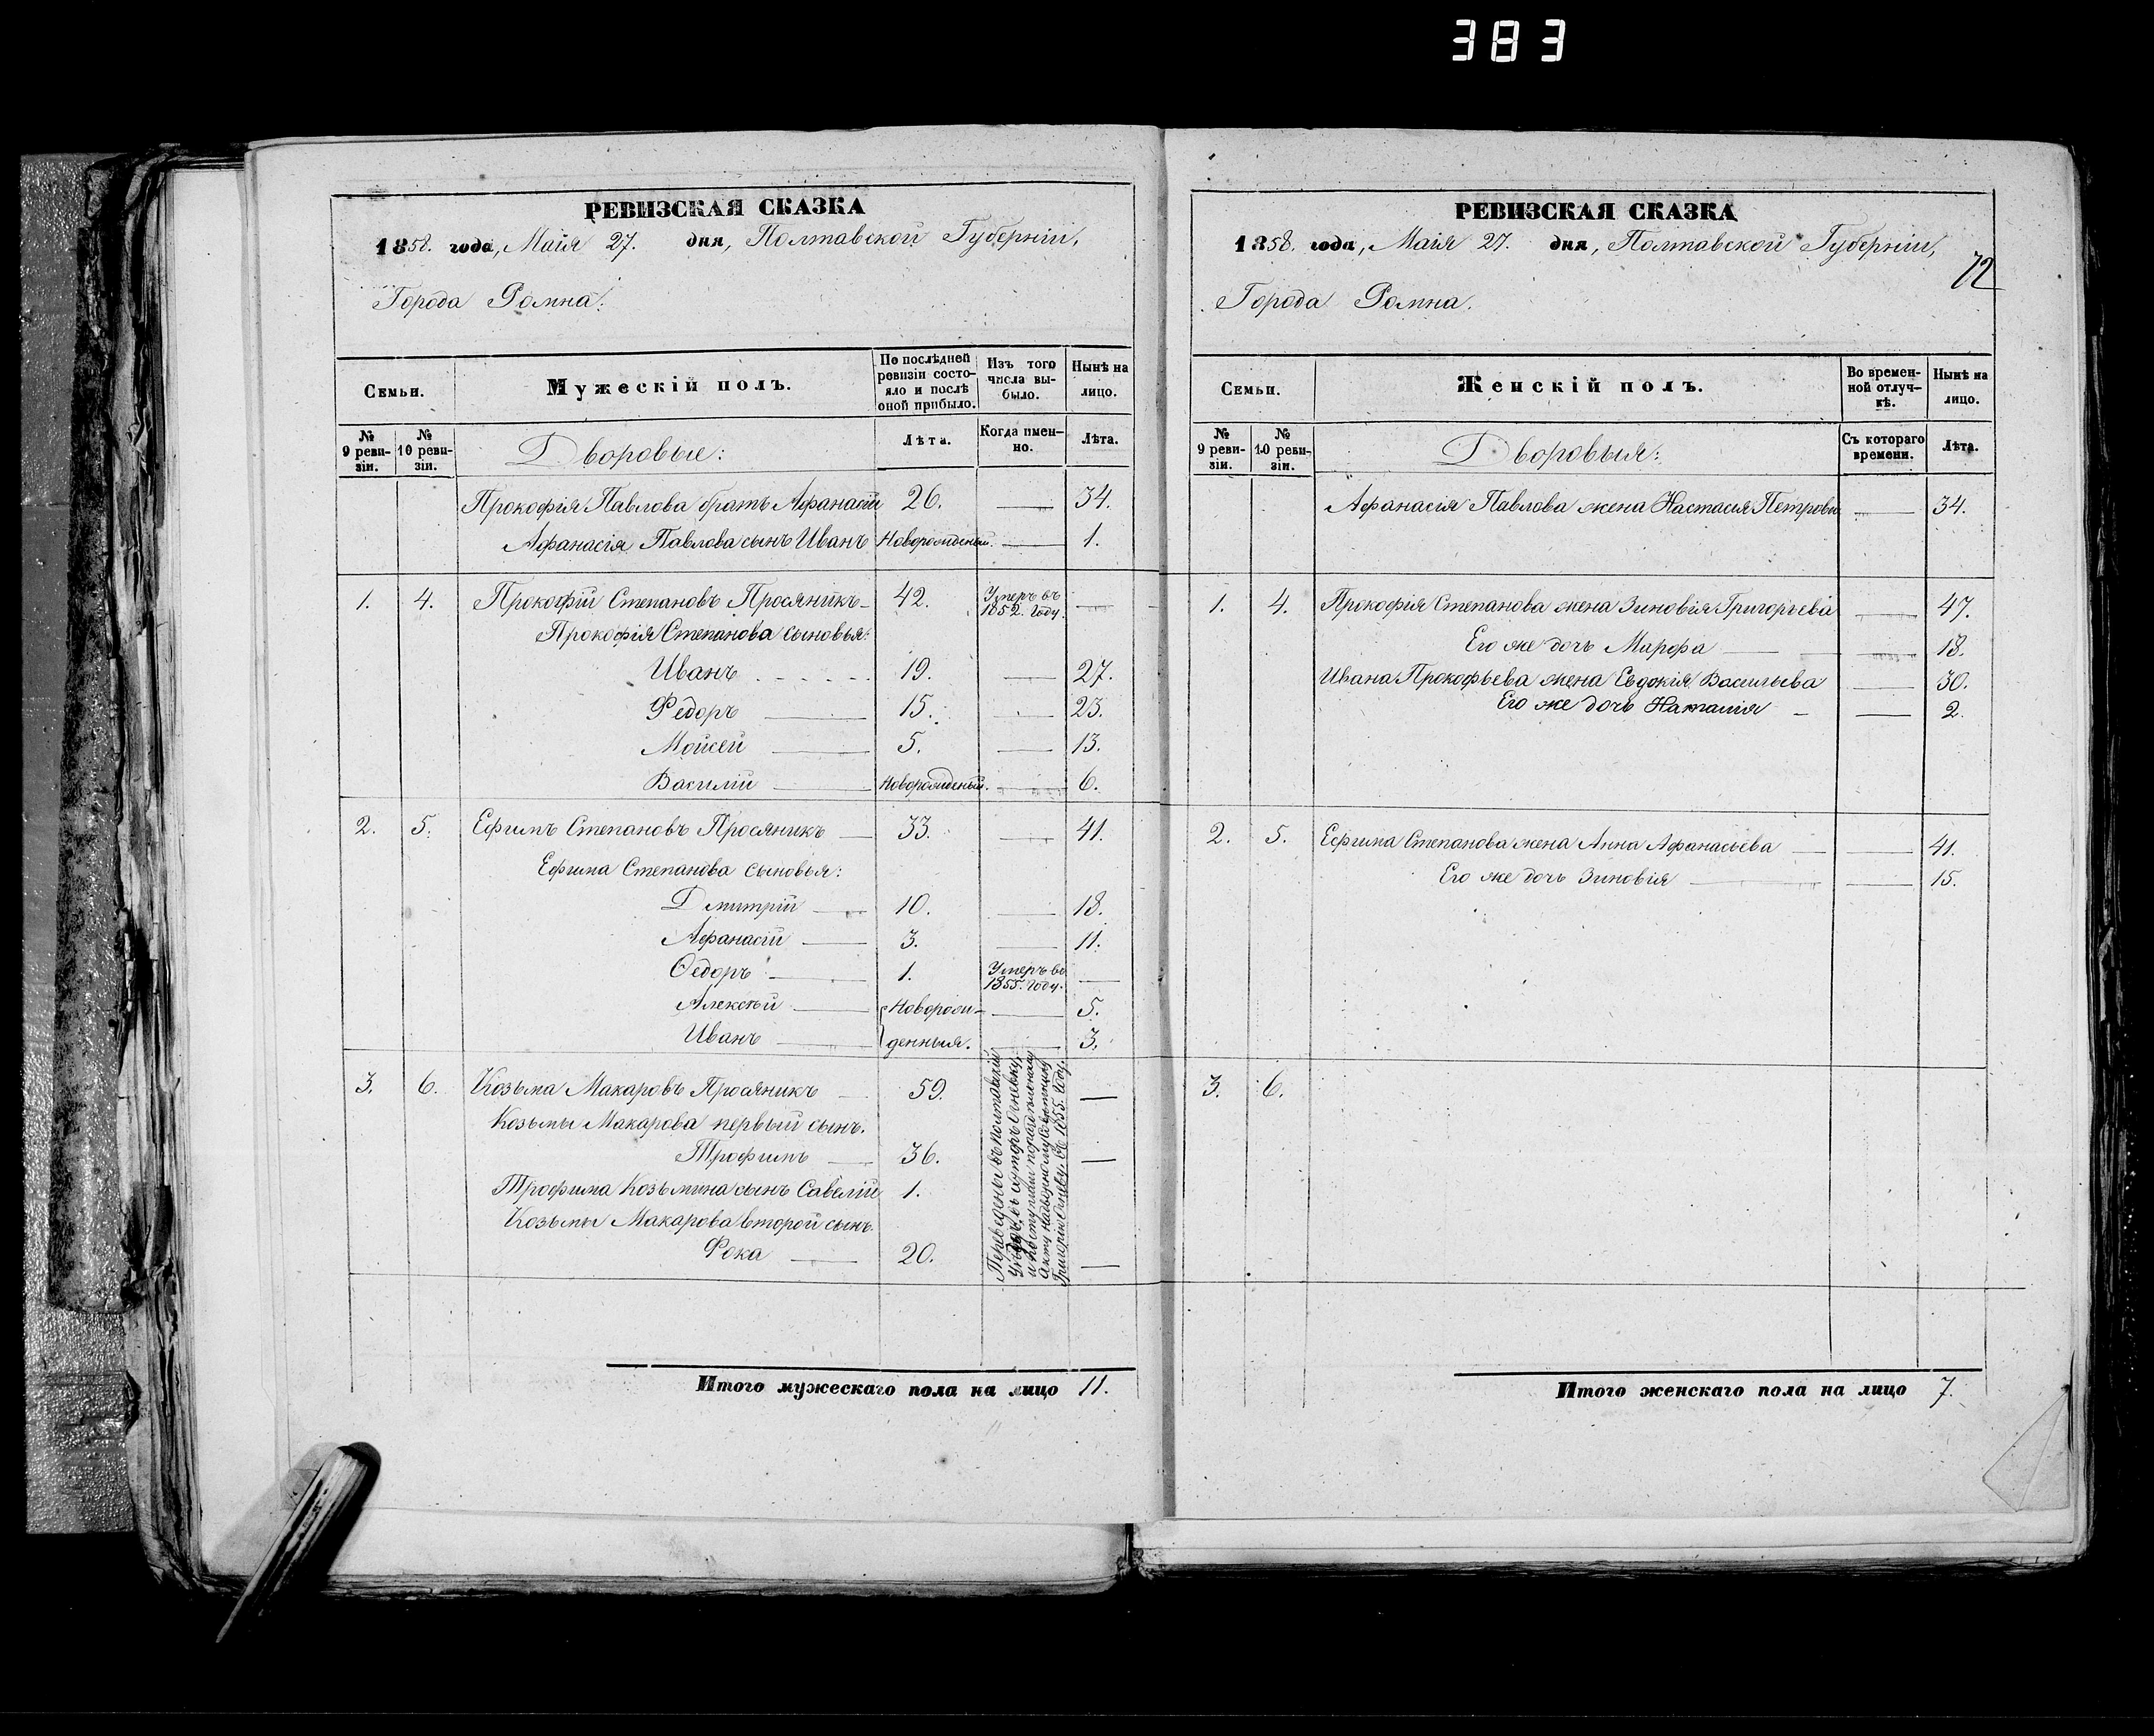 383
РЕВИЗСКАЯ СКАЗКА
1858. года, Маія 27. дня, Полтавской Губерніи,
Города Ромна.
Семьи.
Мужескій полъ.
По послѣдней ревизіи состояло и послѣ оной прибыло.
Изъ того числа выбыло.
Нынѣ на лицо.
№ 9 ревизіи.
№ 10 ревизіи.
Дворовые:
Лѣта.
Когда именно.
Лѣта.
Прокофія Павлова братъ Афанасій 26. — 34.
Афанасія Павлова сынъ Иванъ Новорожденный. — 1.
1. 4. Прокофій Степановъ Просяникъ — 42. Умеръ въ 1852. году. —
Прокофія Степанова сыновья:
Иванъ 19. — 27.
Федоръ — 15. — 23.
Мойсей — 5. — 13.
Василій — Новорожденый. — 6.
2. 5. Ефимъ Степановъ Просяникъ — 33. — 41.
Ефима Степанова сыновья:
Дмитрій — 10. — 18.
Афанасій — 3. — 11.
Ѳедоръ — 1. Умеръ въ 1855. году. —
Алексѣй — Новорож- — 5.
Иванъ — денныя. — 3.
3. 6. Козьма Макаровъ Просяникъ — 59. —
Козьмы Макарова первый сынъ.
Трофимъ — 36. —
Трофима Козьмина сынъ Савелій 1.
Козьмы Макарова второй сынъ.
Фока — 20. —
Переведены въ Полтавскій
уѣздъ, въ хуторъ Огневку,
и поступили по раздѣльному
Акту Надворному Совѣтнику
Григорію Огневу. въ 1855. году.
Итого мужескаго пола на лицо 11.
РЕВИЗСКАЯ СКАЗКА
1858. года, Маія 27. дня, Полтавской Губерніи,
72
Города Ромна.
Семьи.
Женскій полъ.
Во временной отлучкѣ.
Нынѣ на лицо.
№ 9 ревизіи.
№ 10 ревизіи.
Дворовыя:
Съ котораго времени.
Лѣта.
Афанасія Павлова жена Настасія Петрова — 34.
1. 4. Прокофія Степанова жена Зиновія Григорьева — 47.
Его же дочь Марфа — — 18.
Ивана Прокофьева жена Евдокія Васильева — 30.
Его же дочь Наталія — — 2.
2. 5. Ефима Степанова жена Анна Афанасьева — — 41.
Его же дочь Зиновія — — 15.
3. 6.
Итого женскаго пола на лицо 7.